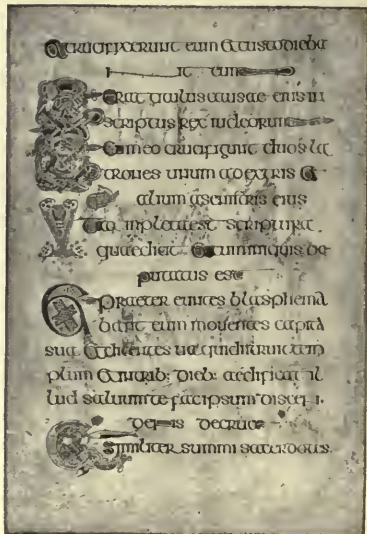 Et crucifixerunt eum & custodieba
nt eum
Et erat titulus causae eius in
scriptus rex iudeorum
Et cum eo crucifigunt duos la
trones unum a dextris &
alium a sinistris eius
impleta est scriptura
quae dicit & cum iniquis de
putatus est
Praetereuntes blasphema
bant eum mouentes capita
sua & dicentes ua qui distruit tem
plum & in trib: dieb: aedificat il
lud saluum te fac ipsum discen
dens de cruce
Similiter summi sacerdotes